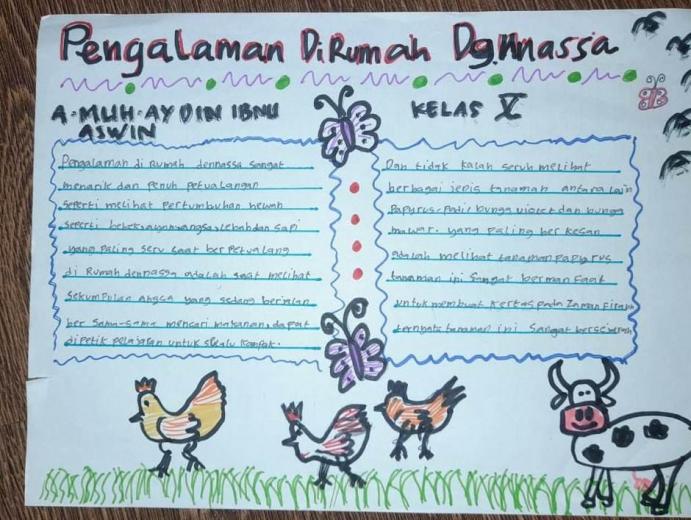 Pengalaman DiRumah Dennassa
A. MUH. AYDIN IBNU
ASWIN
KELAS X
Pengalaman di Rumah dennassa sangat
menarik dan Penuh Petualangan
seperti melihat Pertumbuhan hewan
seperti bebek, ayam, angsa, lebah dan sapi
yang Paling seru saat ber Petualang
di Rumah dennassa adalah saat melihat
sekumPulan angsa yang sedang berjalan
ber sama-sama mencari makanan, dapat
dipetik pelajaran untuk selalu kompak.
Dan tidak kalah seruh melihat
berbagai jenis tanaman antara lain
Papyrus, Padi, bunga violet dan bunga
mawar. yang Paling ber kesan
adalah melihat tanaman Papyrus
tanaman ini sangat bermanfaat
untuk membuat kertas pada Zaman Firaun
ternyata tanaman ini Sangat bersejarah